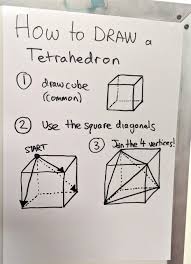 How to DRAW a
Tetrahedron
① draw cube
(common)
② Use the square diagonals
START
③ Join the 4 vertices!